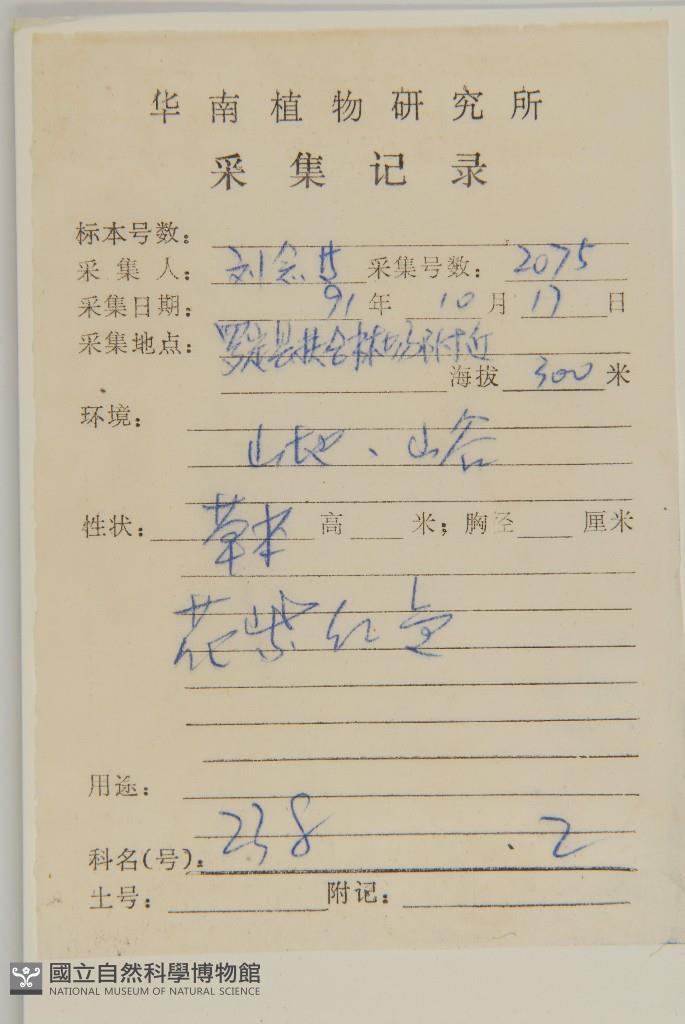 华南植物研究所
采集记录
标本号数：
采集人： 刘念 采集号数： 2075
采集日期： 91 年 10 月 17 日
采集地点： 罗定县扶合林场附近
海拔 300 米
环境：
山地、山谷
性状： 草本 高 米；胸径 厘米
花紫红色
用途：
科名(号)： 238 . 2
土号： 附记：
國立自然科學博物館
NATIONAL MUSEUM OF NATURAL SCIENCE